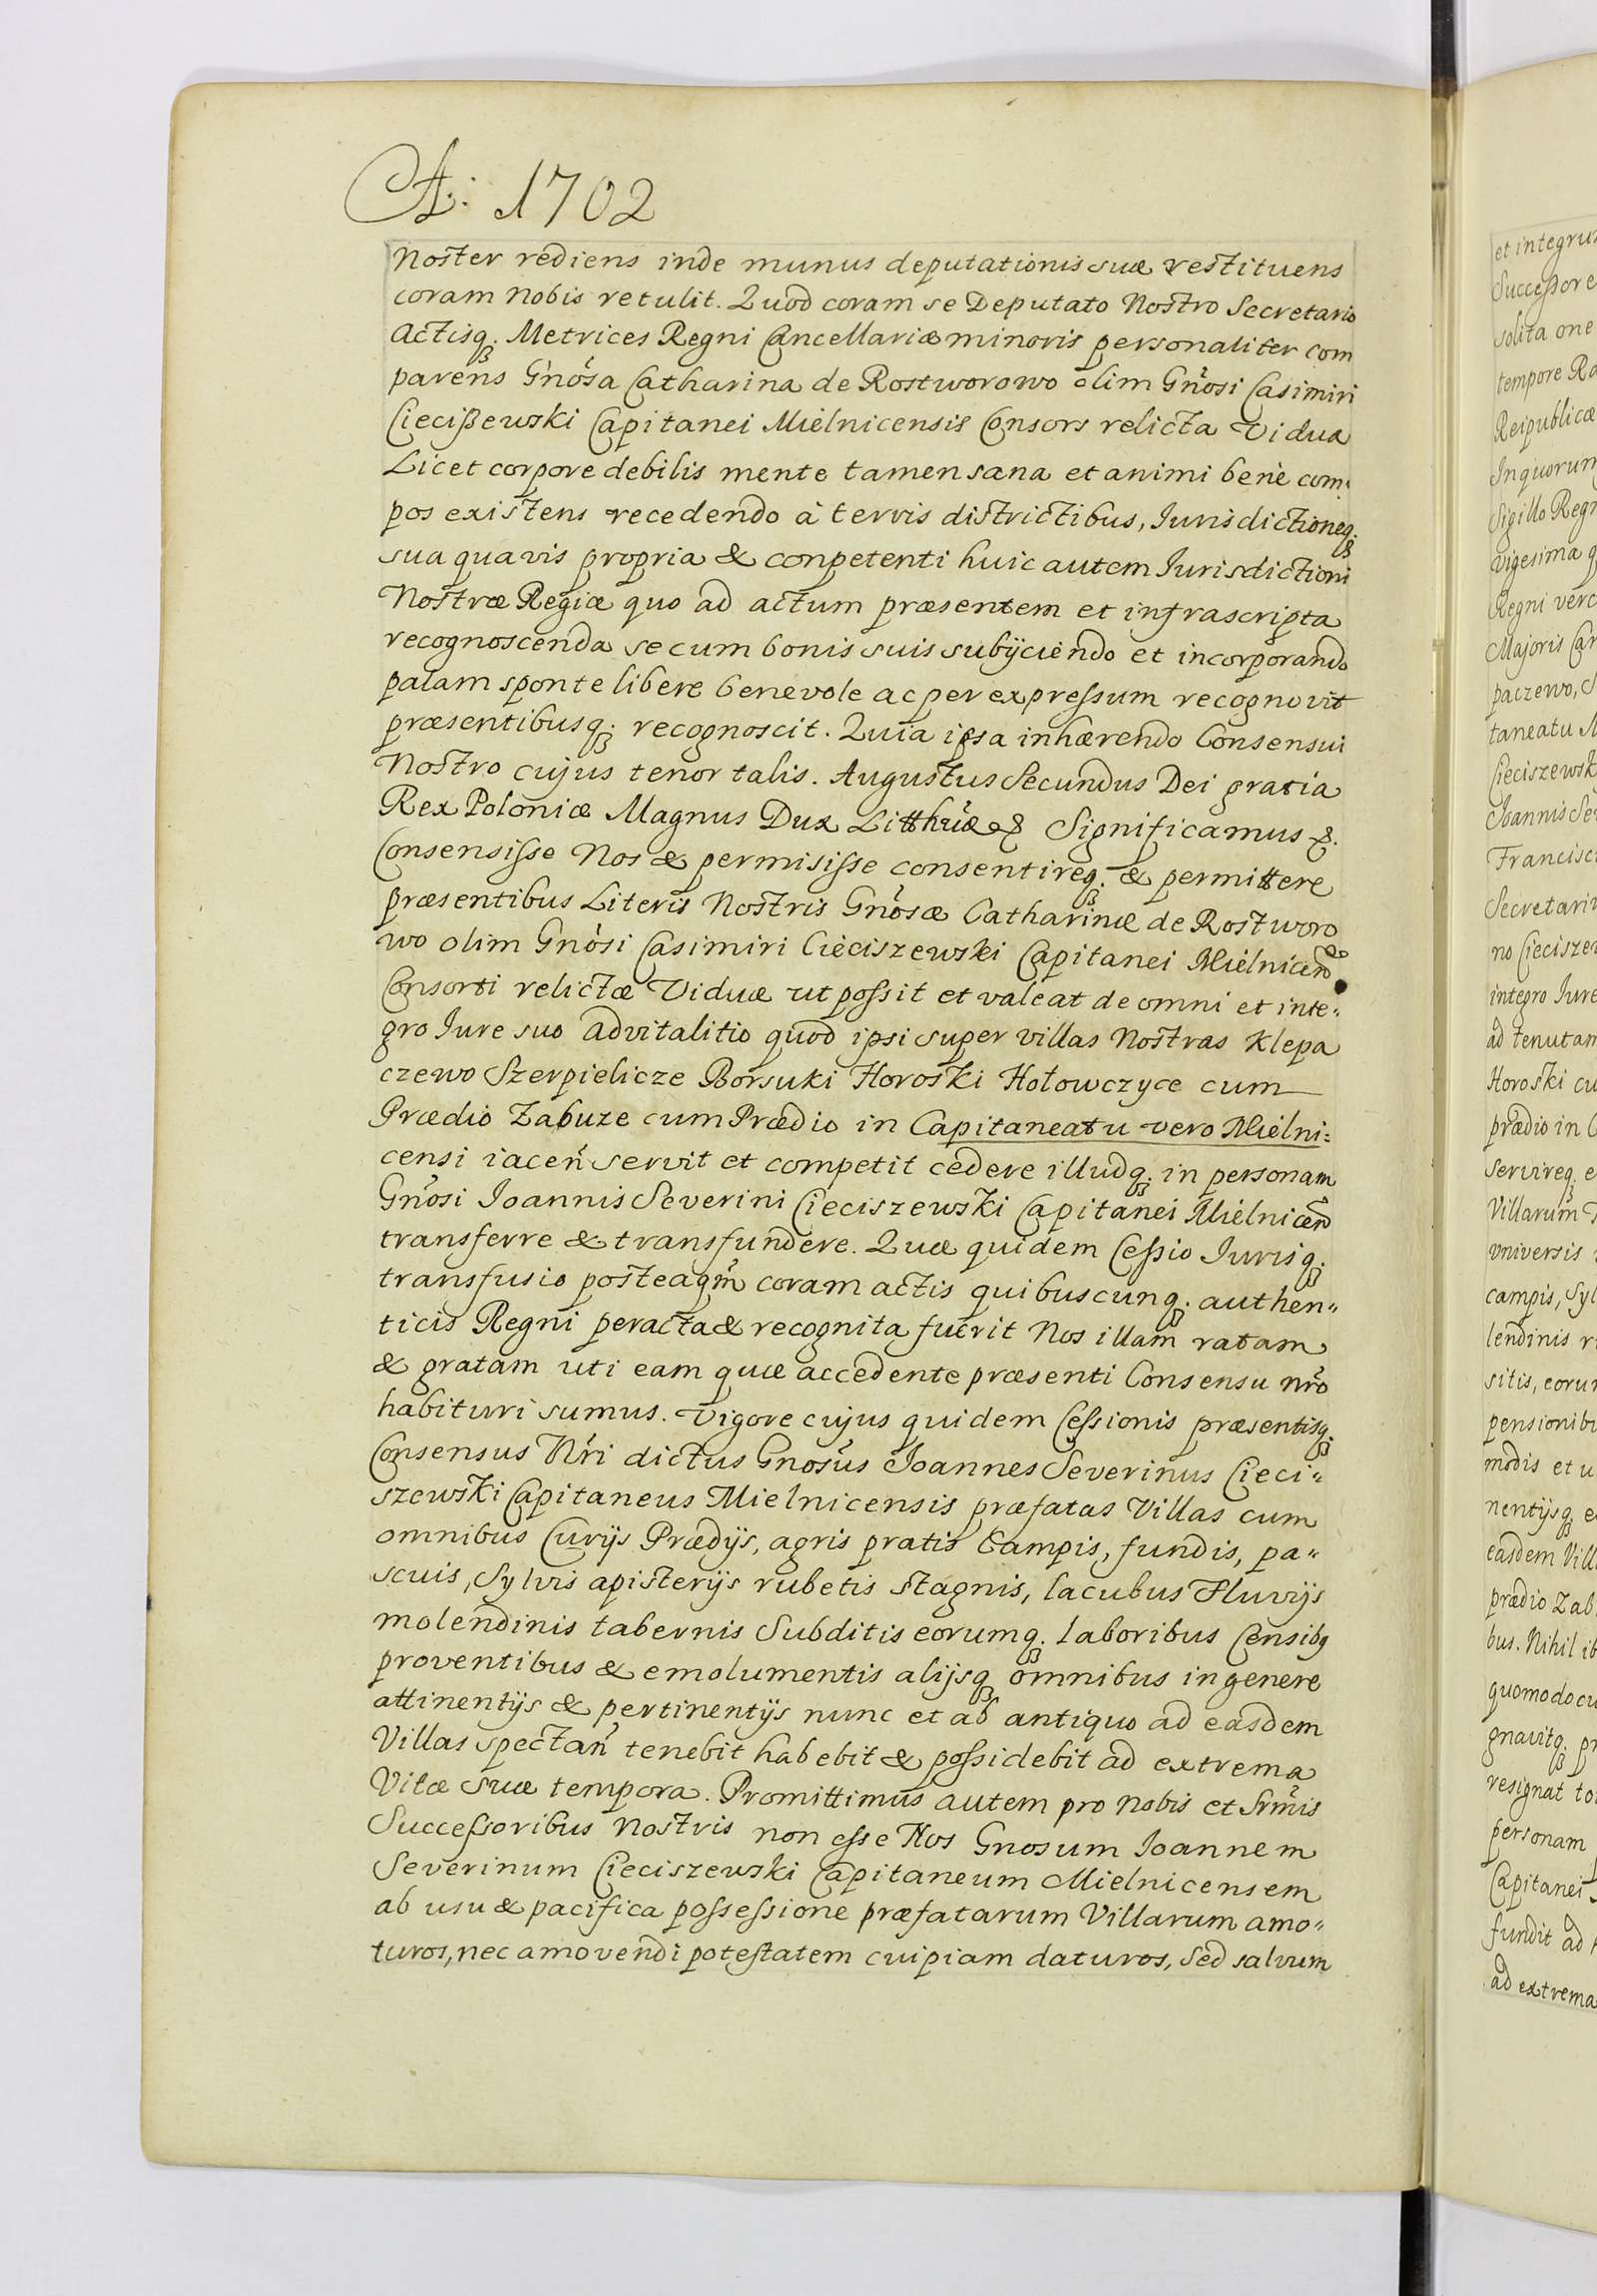 A: 1702
Noster rediens inde munus deputationis suæ restituens
coram Nobis retulit. Quod coram se Deputato Nostro Secretario
Actisq₃. Metrices Regni Cancellariæ minoris personaliter com
parens Gnõsa Catharina de Rostworowo olim Gnõsi Casimiri
Ciecißewski Capitanei Mielnicensis Consors relicta Vidua
Licet corpore debilis mente tamen sana et animi benè com„
pos existens recedendo à terris districtibus, Iurisdictioneq₃.
sua quavis propria & conpetenti huic autem Iurisdictioni
Nostræ Regiæ quo ad actum præsentem et infrascripta
recognoscenda se cum bonis suis subijciendo et incorporando
palam sponte libere benevole ac per expressum recognovit
præsentibusq₃. recognoscit. Quia ipsa inhærendo Consensui
Nostro cujus tenor talis. Augustus Secundus Dei gratia
Rex Poloniæ Magnus Dux Litthũæ & Significamus &.
Consensisse Nos & permisisse consentireq₃. & permittere
præsentibus Literis Nostris Gnõsæ Catharinæ de Rostworo
wo olim Gnõsi Casimiri Cieciszewski Capitanei Mielnicen̄
Consorti relictæ Viduæ ut possit et valeat de omni et inte„
gro Iure suo advitalitio quod ipsi super villas Nostras Klepa
czewo Szerpielicze Borsuki Horoski Hołowczyce cum
Prædio Zabuze cum Prædio in Capitaneatu vero Mielni=
censi iacen̄ servit et competit cedere illudq₃. in personam
Gnõsi Ioannis Severini Cieciszewski Capitanei Mielnicen̄
transferre & transfundere. Quæ quidem Cessio Iurisq₃.
transfusio posteaqm̃ coram actis quibuscunq₃. authen„
ticis Regni peracta & recognita fuerit Nos illam ratam
& gratam uti eam quæ accedente præsenti Consensu nrõ
habituri sumus. Vigore cujus quidem Cessionis præsentisq₃.
Consensus Nr̃i dictus Gnosũs Ioannes Severinus Cieci„
szewski Capitaneus Mielnicensis præfatas Villas cum
omnibus Curijs Prædijs, agris pratis Campis, fundis, pa„
scuis, Sylvis apisterijs rubetis stagnis, lacubus Fluvijs
molendinis tabernis Subditis eorumq₃. laboribus Censibq
proventibus & emolumentis alijsq₃ omnibus in genere
attinentijs & pertinentijs nunc et ab antiquo ad easdem
Villas spectan̄ tenebit habebit & possidebit ad extrema
Vitæ suæ tempora. Promittimus autem pro Nobis et Srm̃is
Successoribus Nostris non esse Nos Gnosum Ioannem
Severinum Cieciszewski Capitaneum Mielnicensem
ab usu & pacifica possessione præfatarum Villarum amo„
turos, nec amovendi potestatem cuipiam daturos, Sed salvum
et integrum
Successore
solita one
tempore Ra
Reipublicæ
In quorum
Sigillo Regn
vigesima q
Regni verò
Majoris Can
paczewo, S
taneatu M
Cieciszewsk
Ioannis Se
Francisci
Secretariu
no Cieciszew
integro Iure
ad tenutam
Horoski cu
prædio in C
servireq₃. e
Villarum
vniversis
campis, Syl
lendinis ri
sitis, eorum
pensionibu
modis et u
nentijsq₃ e
easdem Vill
prædio Zab
bus. Nihil ib
quomodocu
gnavitq₃. pr
resignat to
personam
Capitanei
fundit ad
ad extrema